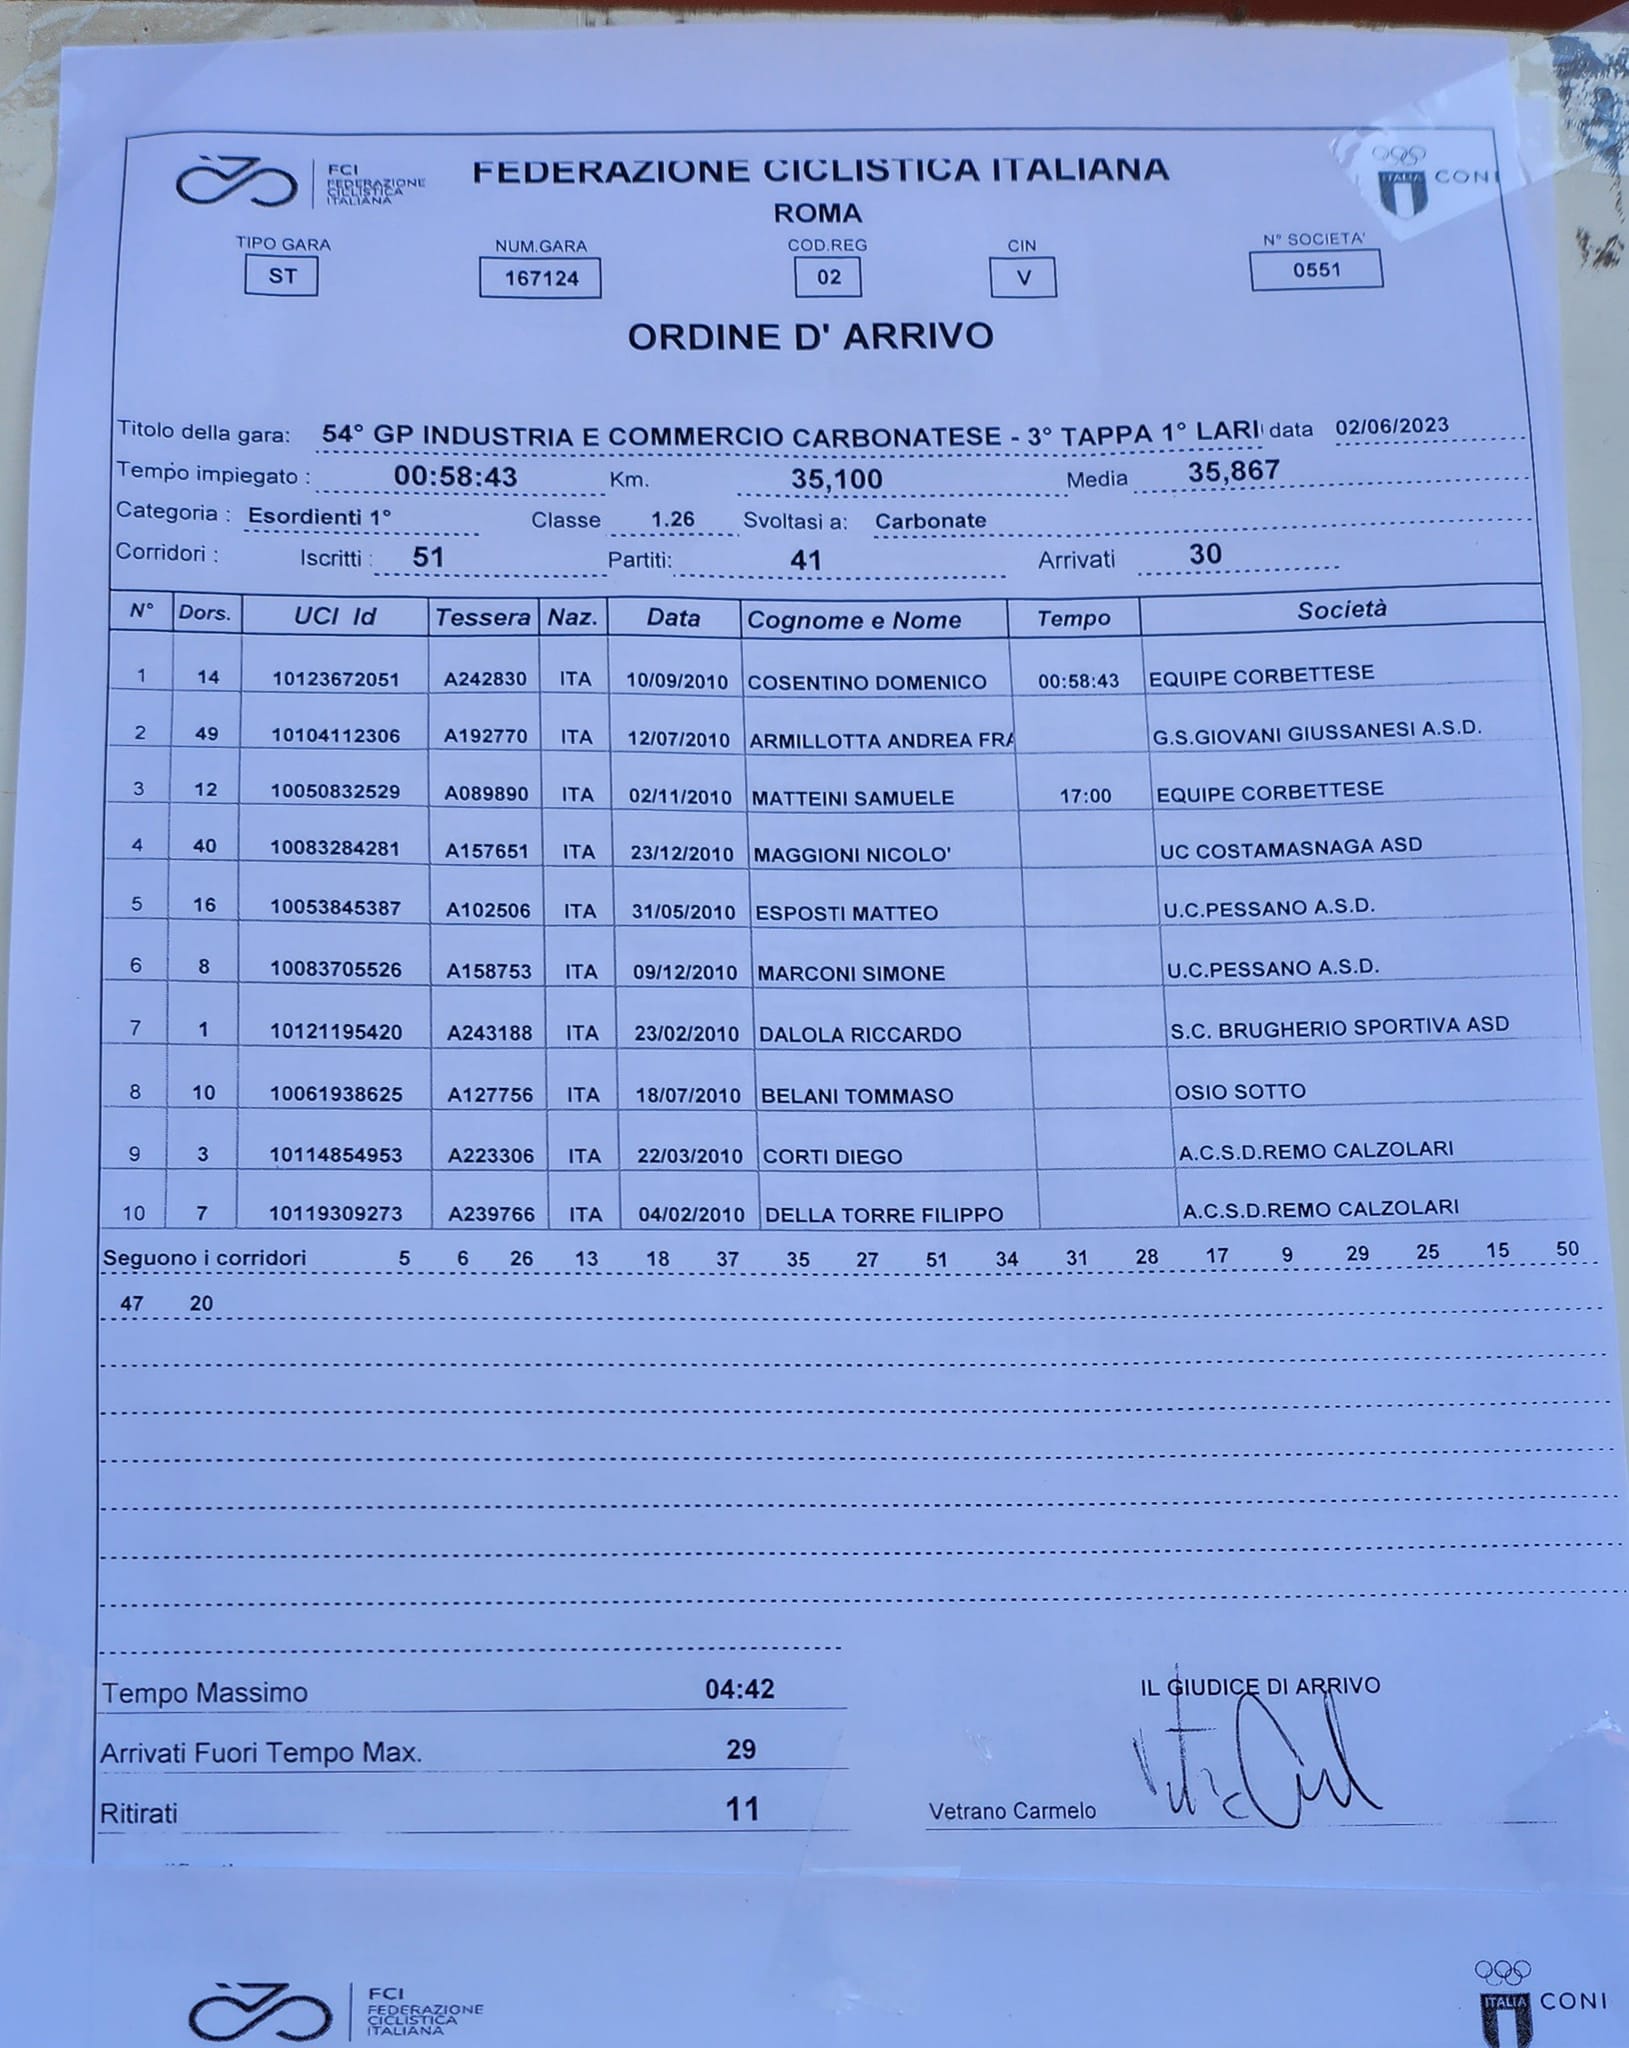 FCI
FEDERAZIONE
CICLISTICA
ITALIANA
FEDERAZIONE CICLISTICA ITALIANA
ITALIA
CONI
ROMA
TIPO GARA NUM.GARA COD.REG CIN N° SOCIETA'
ST 167124 02 V 0551
ORDINE D' ARRIVO
Titolo della gara: 54° GP INDUSTRIA E COMMERCIO CARBONATESE - 3° TAPPA 1° LARI data 02/06/2023
Tempo impiegato : 00:58:43 Km. 35,100 Media 35,867
Categoria : Esordienti 1° Classe 1.26 Svoltasi a: Carbonate
Corridori : Iscritti : 51 Partiti: 41 Arrivati 30
N° Dors. UCI Id Tessera Naz. Data Cognome e Nome Tempo Società
1 14 10123672051 A242830 ITA 10/09/2010 COSENTINO DOMENICO 00:58:43 EQUIPE CORBETTESE
2 49 10104112306 A192770 ITA 12/07/2010 ARMILLOTTA ANDREA FRA G.S.GIOVANI GIUSSANESI A.S.D.
3 12 10050832529 A089890 ITA 02/11/2010 MATTEINI SAMUELE 17:00 EQUIPE CORBETTESE
4 40 10083284281 A157651 ITA 23/12/2010 MAGGIONI NICOLO' UC COSTAMASNAGA ASD
5 16 10053845387 A102506 ITA 31/05/2010 ESPOSTI MATTEO U.C.PESSANO A.S.D.
6 8 10083705526 A158753 ITA 09/12/2010 MARCONI SIMONE U.C.PESSANO A.S.D.
7 1 10121195420 A243188 ITA 23/02/2010 DALOLA RICCARDO S.C. BRUGHERIO SPORTIVA ASD
8 10 10061938625 A127756 ITA 18/07/2010 BELANI TOMMASO OSIO SOTTO
9 3 10114854953 A223306 ITA 22/03/2010 CORTI DIEGO A.C.S.D.REMO CALZOLARI
10 7 10119309273 A239766 ITA 04/02/2010 DELLA TORRE FILIPPO A.C.S.D.REMO CALZOLARI
Seguono i corridori 5 6 26 13 18 37 35 27 51 34 31 28 17 9 29 25 15 50
47 20
Tempo Massimo 04:42
IL GIUDICE DI ARRIVO
Arrivati Fuori Tempo Max. 29
Ritirati 11
Vetrano Carmelo
FCI
FEDERAZIONE
CICLISTICA
ITALIANA
ITALIA
CONI